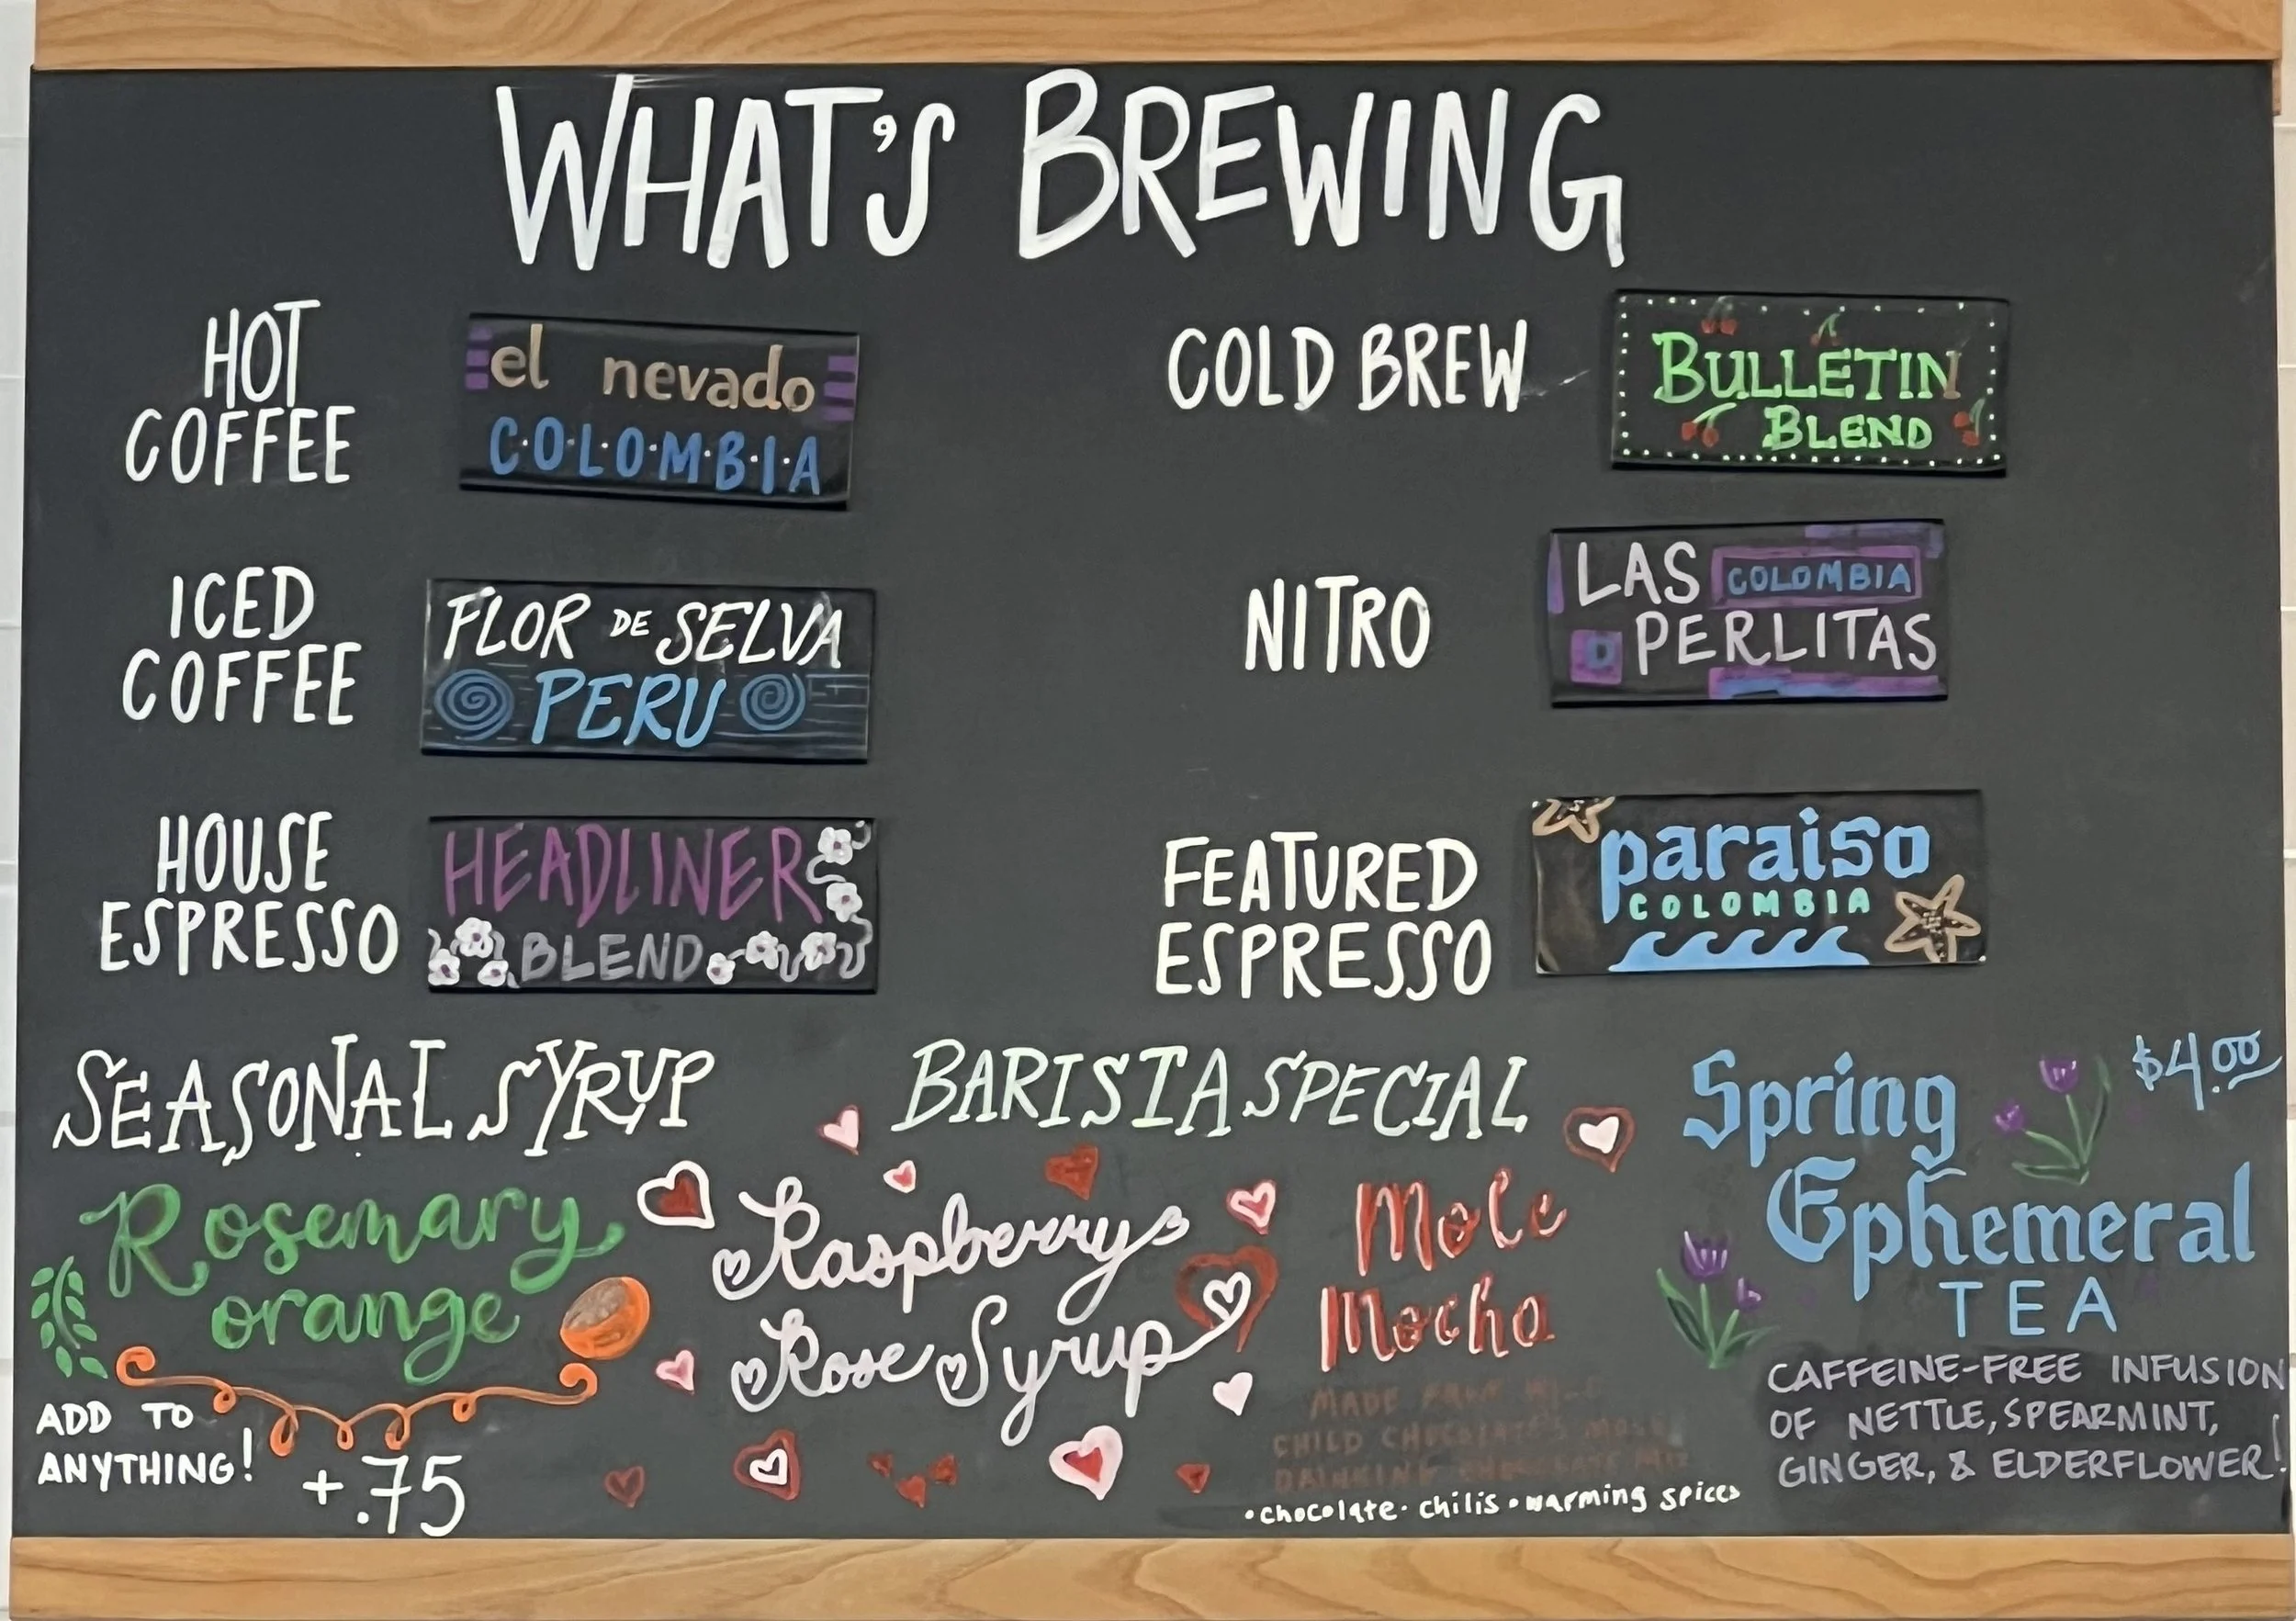 WHAT'S BREWING
HOT
COFFEE
el nevado
C·O·L·O·M·B·I·A
ICED
COFFEE
FLOR DE SELVA
PERU
HOUSE
ESPRESSO
HEADLINER
BLEND
COLD BREW
BULLETIN
BLEND
NITRO
LAS COLOMBIA
PERLITAS
FEATURED
ESPRESSO
paraiso
COLOMBIA
SEASONAL SYRUP
Rosemary
orange
ADD TO
ANYTHING!
+.75
BARISTA SPECIAL
Raspberry
Rose Syrup
Mole
Mocha
MADE FROM WILD
CHILD CHOCOLATE'S MOLE
DRINKING CHOCOLATE MIX
•chocolate•chilis•warming spices
$4.00
Spring
Ephemeral
TEA
CAFFEINE-FREE INFUSION
OF NETTLE, SPEARMINT,
GINGER, & ELDERFLOWER!